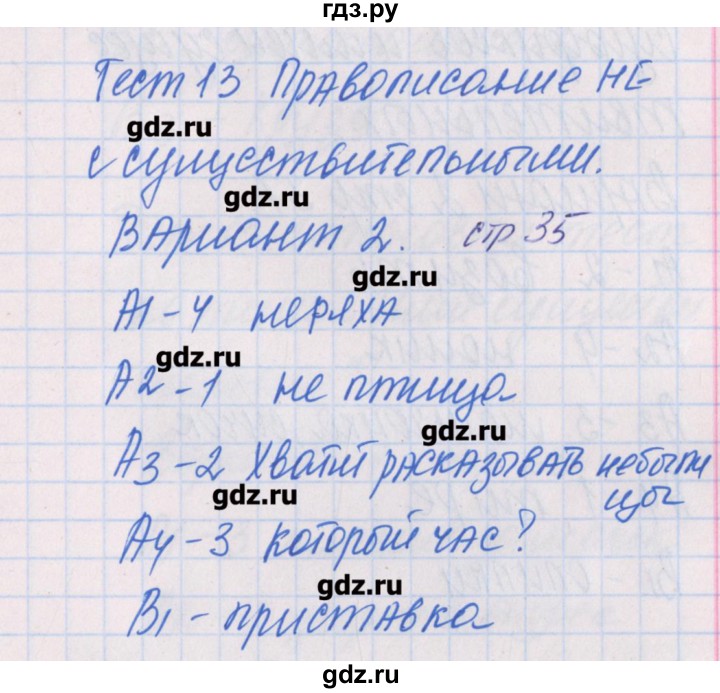 гдз.ру
Тест 13 Правописание НЕ
gdz.ru
с существительными.
gdz.ru
Вариант 2. стр 35
gdz.ru
А1-4 неряха
gdz.ru
А2-1 не птица
gdz.ru
А3-2 Хватит расказывать небыли
gdz.ru
цы
А4-3 который час?
gdz.ru
В1-приставка
gdz.ru